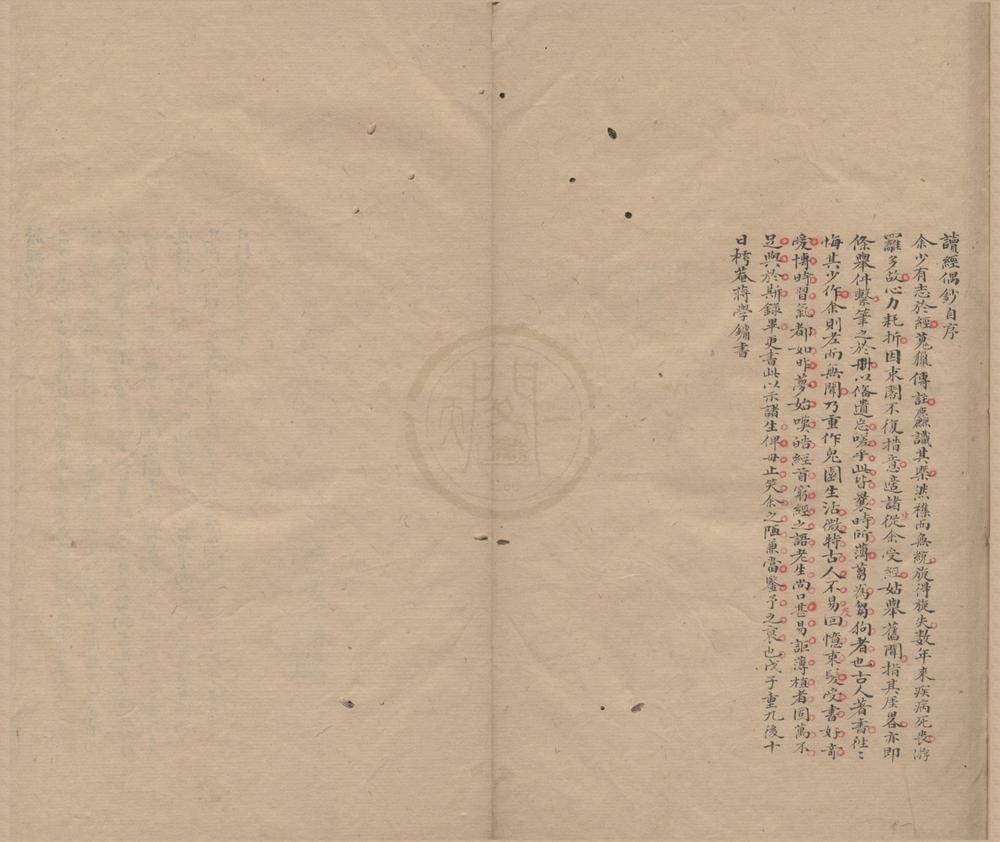 讀經偶鈔自序
余少有志於經蒐獵傳註麤識其槩然樵而無統旋得旋失數年來疾病死喪洊
罹多故心力耗折因束閣不復措意適諸從余受經姑舉舊聞指其厓畧亦即
條舉件繫筆之於冊以俻遺忘嗟乎此皆曩時所薄蒭為芻狗者也古人著書往〻
悔其少作余則老而無聞乃重作兔園生活微特古人不易回憶束髮受書好奇
愛博時習氣都如昨夢始嘆皓經首窮經之語老生尚口甚易詎薄植者固萬不
足與於斯錄畢更書此以示諸生俾毋止笑余之陋兼當鑒予之哀也戊子重九後十
日樗菴蔣學鏞書